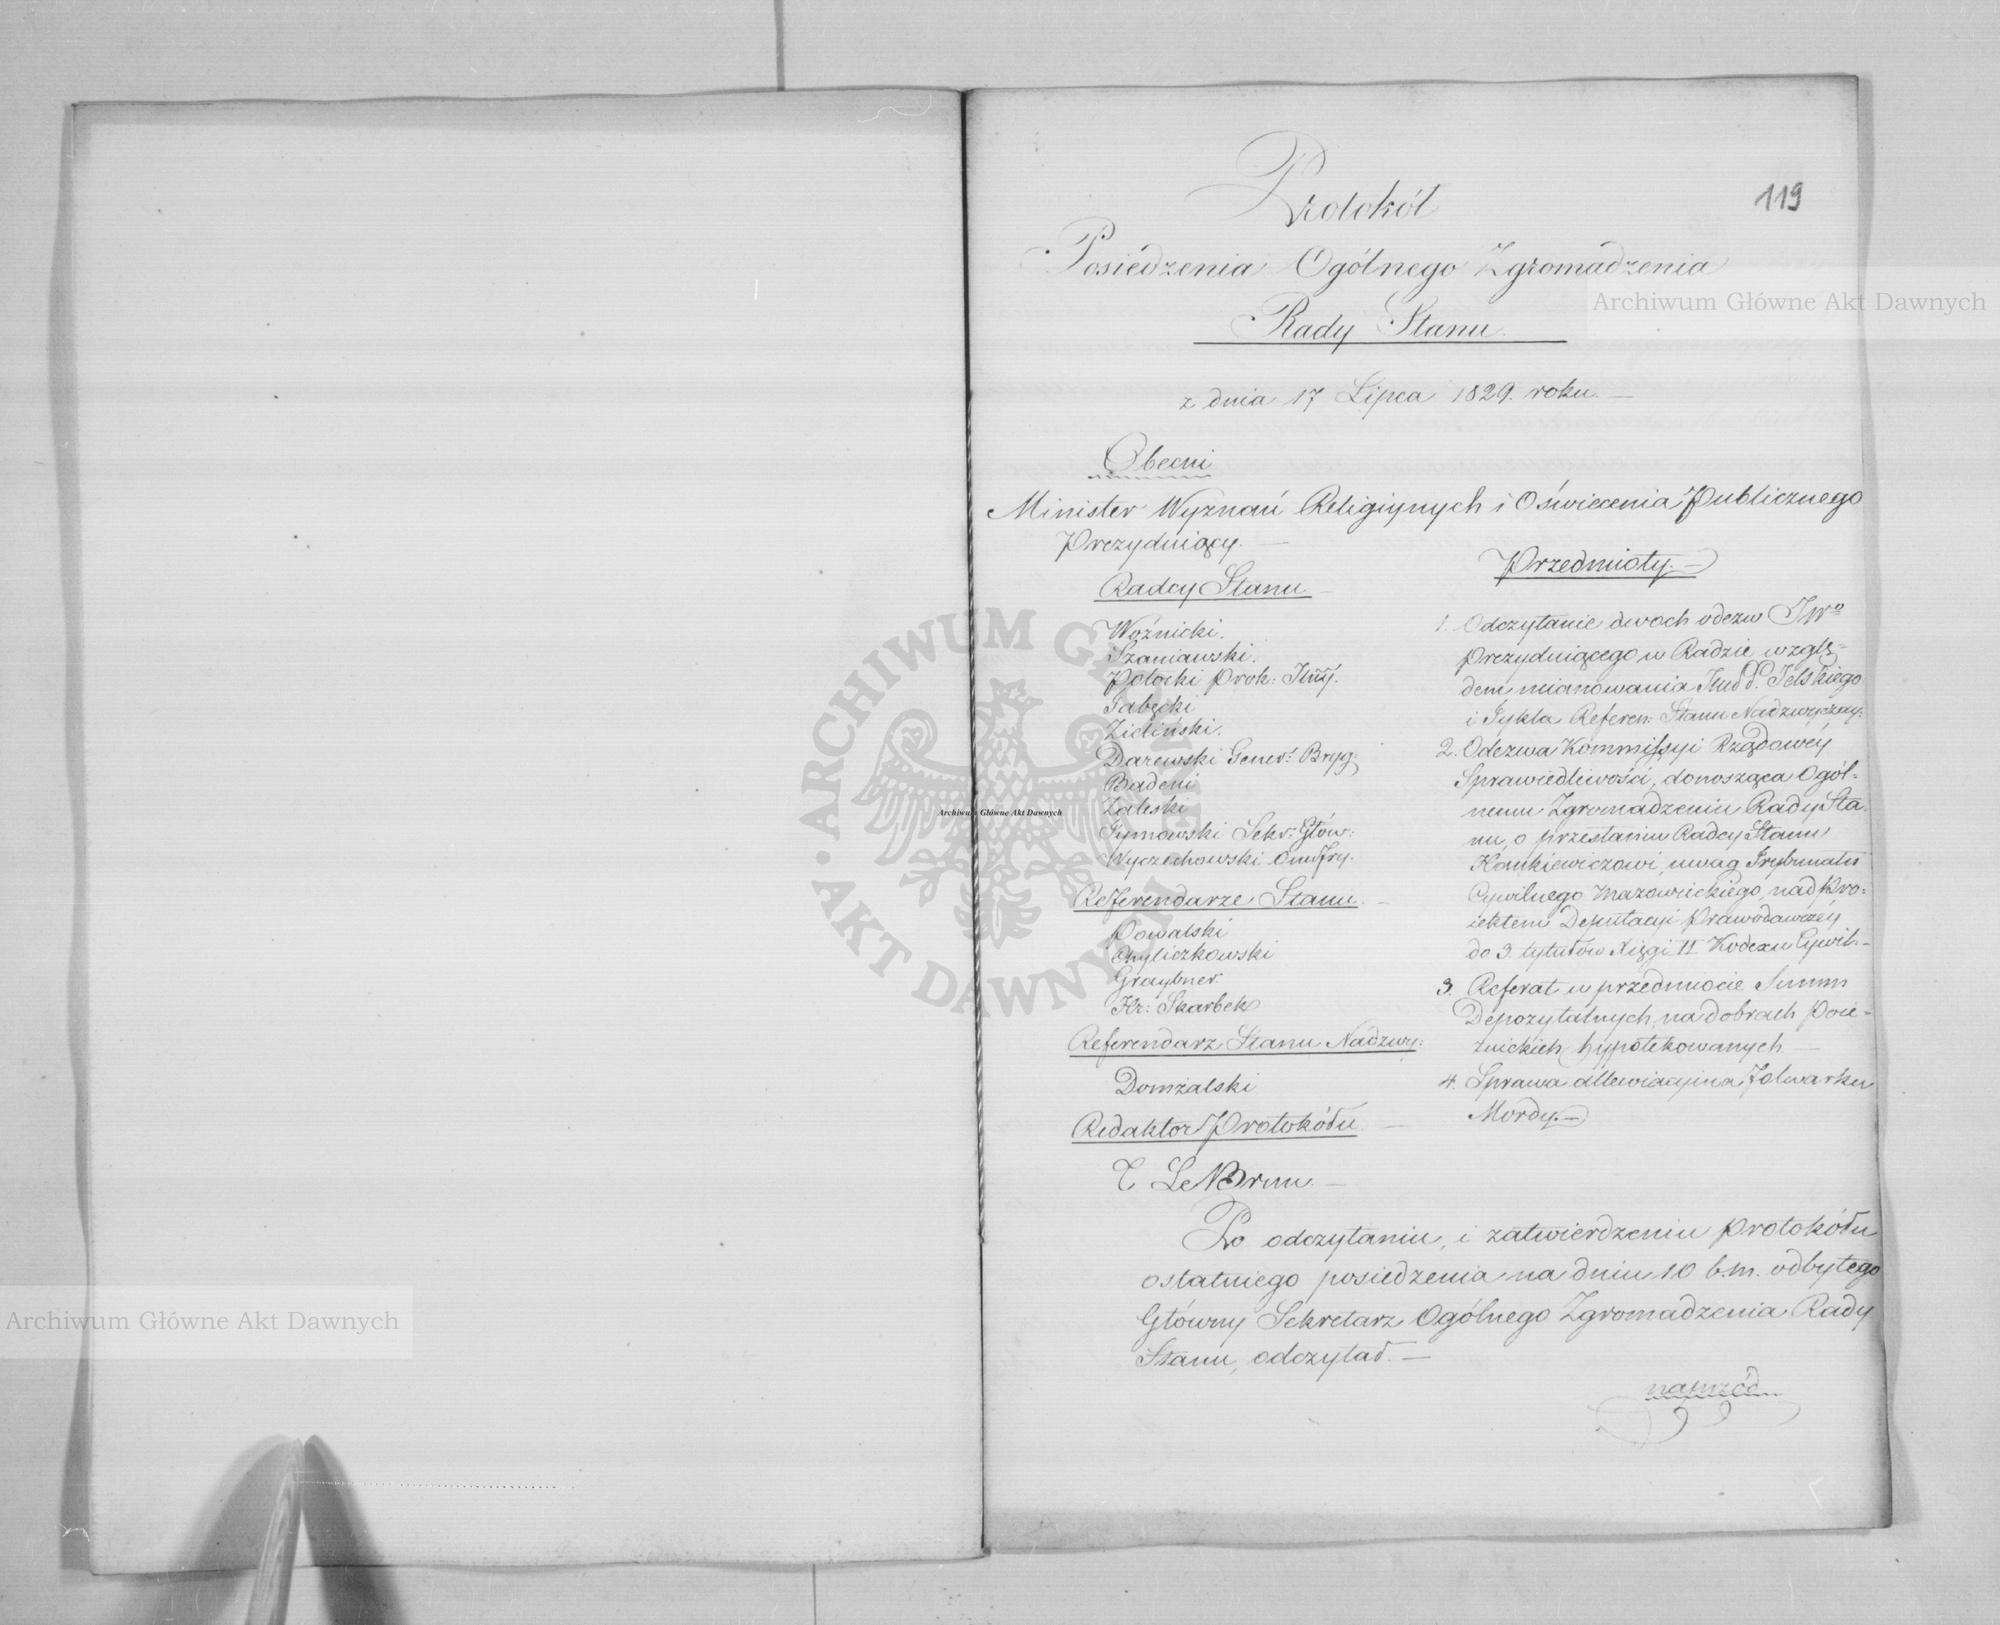 119
Protokół
Posiedzenia Ogólnego Zgromadzenia
Rady Stanu.
z dnia 17 Lipca 1829. roku. —
Obecni
Minister Wyznań Religiynych i Oświecenia Publicznego
Prezyduiący. —
Radcy Stanu —
Woźnicki.
Szaniawski.
Potocki Prok:
Tabęcki
Zieliński.
Darewski Gener: Bryg:
Badeni
Zaleski
Tymowski Sekr: Głów:
Wyczechowski Onufry.
Referendarze Stanu. —
Powalski
Chyliczkowski
Graybner
Hr: Skarbek
Referendarz Stanu Nadzwy:
Domżalski
Redaktor Protokółu. —
Le Brun. —
Przedmioty. —
1. Odczytanie dwoch odezw JWo
Prezyduiącego w Radzie wzglę=
dem mianowania Jelskiego
i Tykla Referen: Stanu Nadzwyczay:
2. Odezwa Kommissyi Rządowéy
Sprawiedliwości, donosząca Ogól=
nemu Zgromadzeniu Rady Sta=
nu, o przesłaniu Radcy Stanu
Hankiewiczowi, uwag Trybunału
Cywilnego Mazowieckiego, nad Pro=
iektem Deputacyi Prawodawczéy
do 3. tytułów Xięgi II Kodexu Cywil: —
3. Referat w przedmiocie Summ
Depozytalnych, na dobrach Pocie=
hypotekowanych —
4. Sprawa allewiacyina folwarku
Mordy. —
Po odczytaniu, i zatwierdzeniu Protokółu
ostatniego posiedzenia na dniu 10 b.m. odbytego
Główny Sekretarz Ogólnego Zgromadzenia Rady
Stanu, odczytał. —
naprzód
Archiwum Główne Akt Dawnych
Archiwum Główne Akt Dawnych
Archiwum Główne Akt Dawnych
ARCHIWUM GŁÓWNE • AKT DAWNYCH